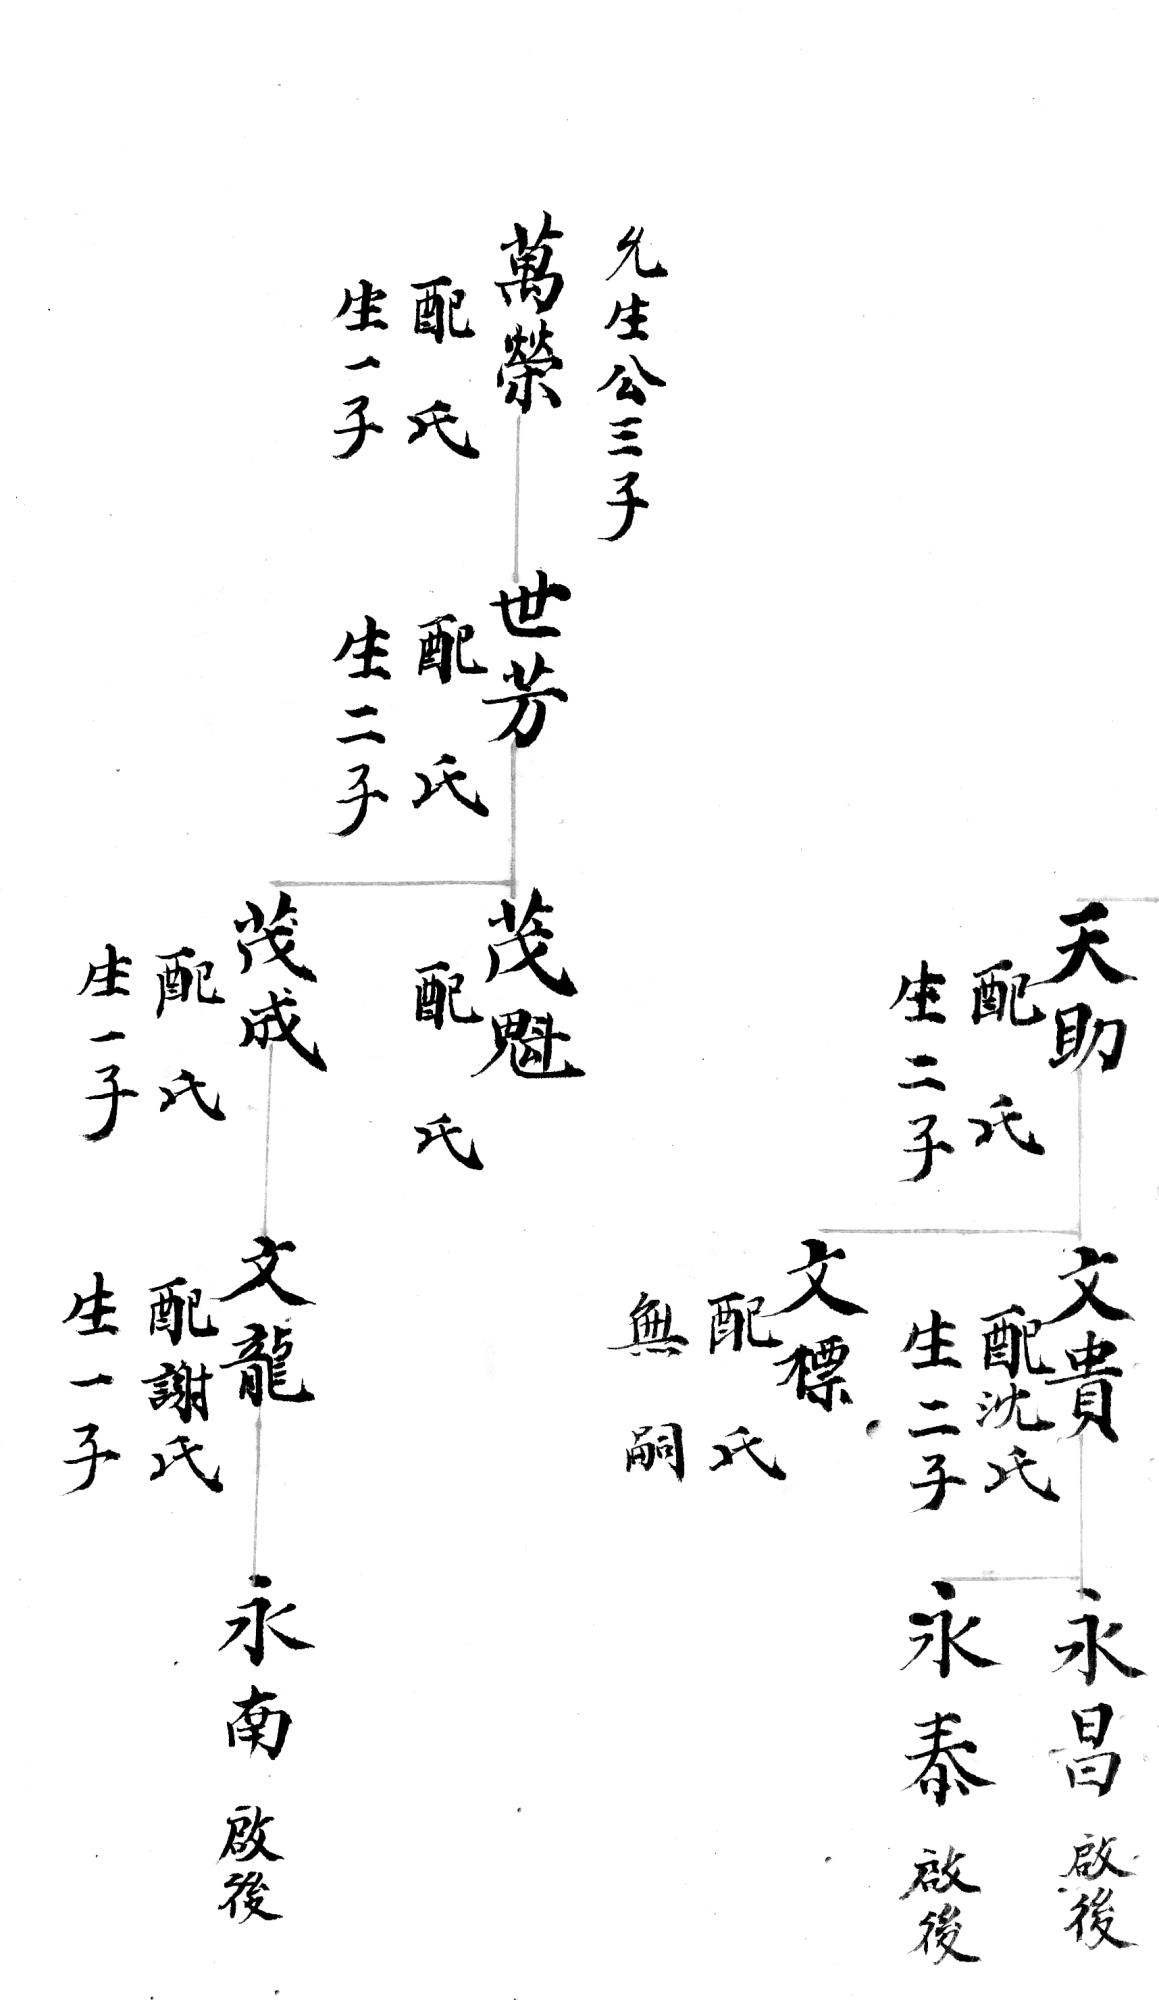 天助
配 氏
生二子
文貴
配沈氏
生二子
文標
配 氏
無嗣
永昌 啟後
永泰 啟後
允生公三子
萬榮
配 氏
生一子
世芳
配 氏
生二子
茂魁
配 氏
茂成
配 氏
生一子
文龍
配謝氏
生一子
永南 啟後